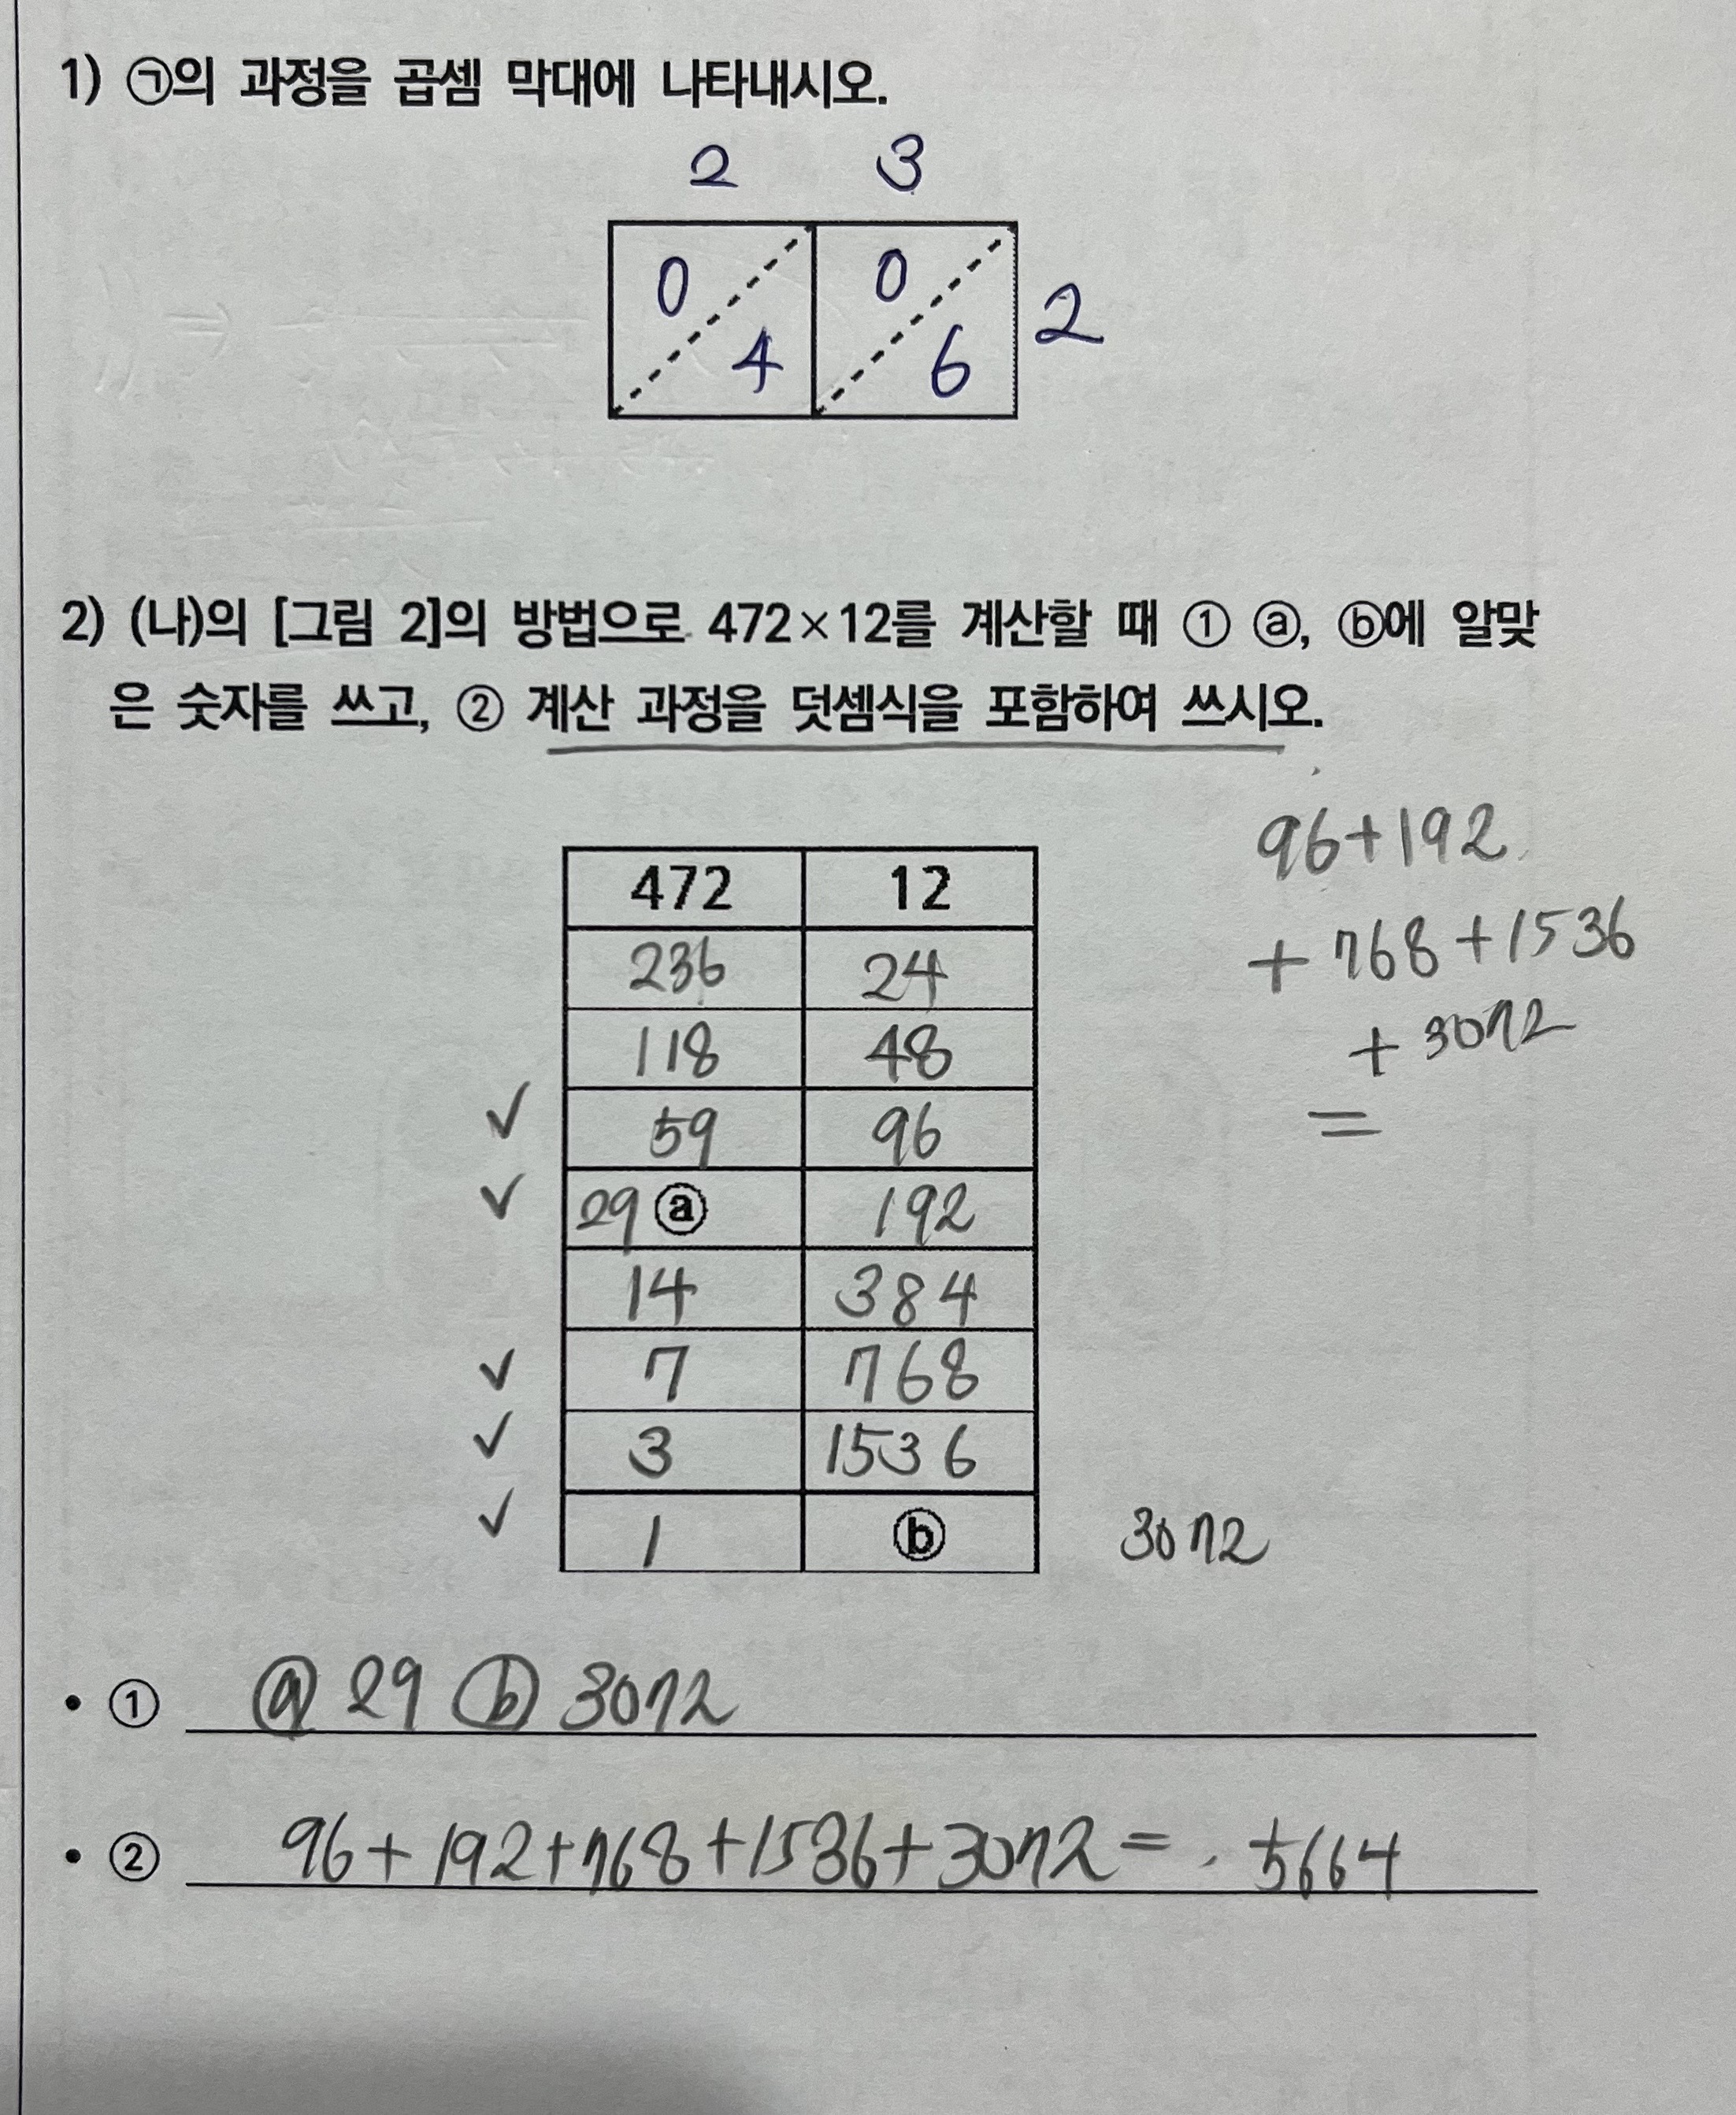 1) ㉠의 과정을 곱셈 막대에 나타내시오.
2 3
0 0
4 6 2
2) (나)의 [그림 2]의 방법으로 472×12를 계산할 때 ① ⓐ, ⓑ에 알맞
은 숫자를 쓰고, ② 계산 과정을 덧셈식을 포함하여 쓰시오.
472 12
236 24
118 48
✓ 59 96
✓ 29 ⓐ 192
14 384
✓ 7 768
✓ 3 1536
✓ 1 ⓑ 3072
96+192
+768+1536
+3072
=
• ① ⓐ 29 ⓑ 3072
• ② 96+192+768+1536+3072= 5664